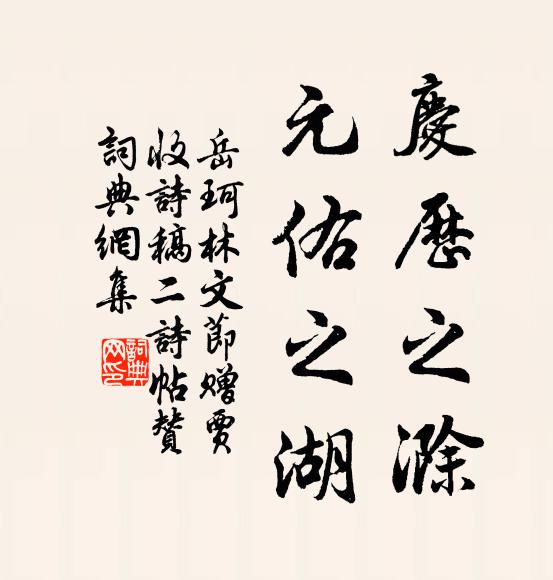 慶歷之滁
元佑之湖
岳珂林文節贈賈
收詩稿二詩帖贊
詞典網集
詞典
网印